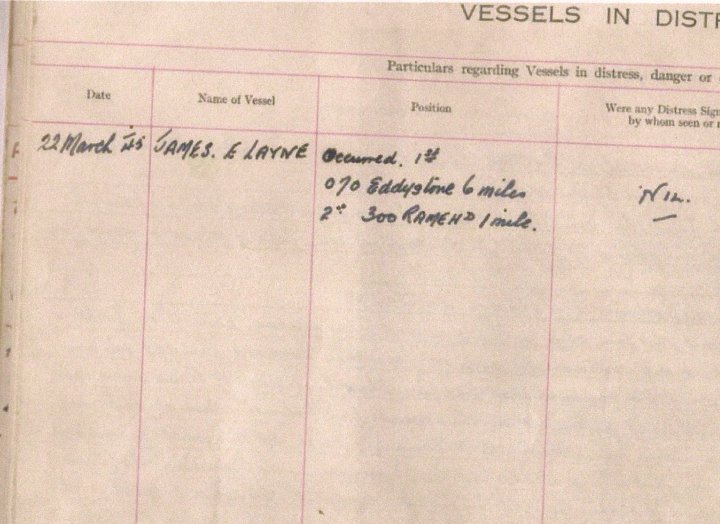 VESSELS IN DISTR
Particulars regarding Vessels in distress, danger or
Date
Name of Vessel
Position
Were any Distress Sign
by whom seen or
22 March 45
JAMES. E LAYNE
Occurred. 1st
070 Eddystone 6 miles
2nd 300 RAMEHD 1 mile.
NIL.